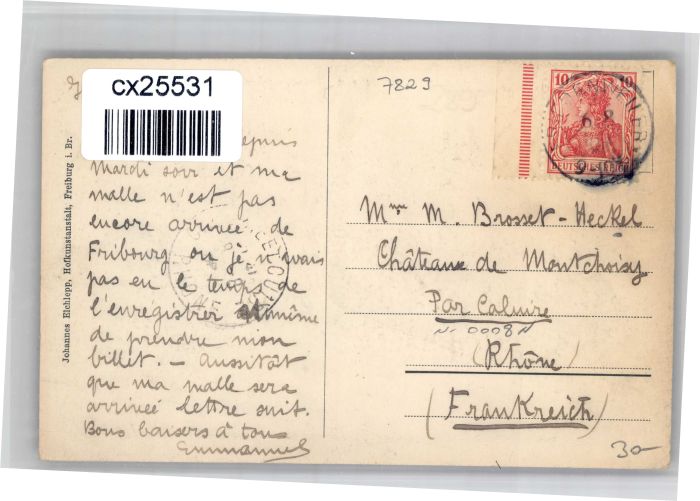 cx25531
7829
depuis
Mardi soir et ma
malle n'est pas
encore arrivée de
Fribourg ou je n'avais
pas eu le temps de
l'enregistrer
de prendre mon
billet. - Aussitôt
que ma malle sera
arrivée lettre suit.
Bons baisers à tous
Emmanuel
Johannes Elchlepp, Hofkunstanstalt, Freiburg i. Br.
10 10
DEUTSCHES REICH
Mme M. Brosset-Heckel
Château de Montchoisy
Par Caluire
(Rhône)
(Frankreich)
30-